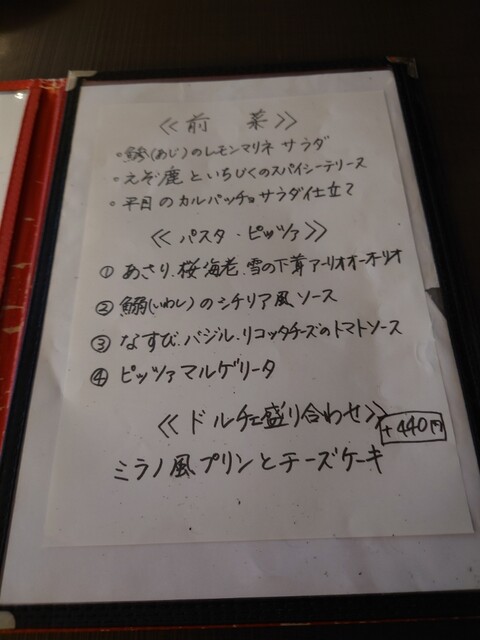 ≪前菜≫
・鰺(あじ)のレモンマリネ サラダ
・えぞ鹿といちじくのスパイシーテリーヌ
・平目のカルパッチョサラダ仕立て
≪パスタ・ピッツァ≫
① あさり、桜海老、雪の下茸アーリオオーリオ
② 鰯(いわし)のシチリア風ソース
③ なすび、バジル、リコッタチーズのトマトソース
④ ピッツァマルゲリータ
≪ドルチェ盛り合わせ≫
+440円
ミラノ風プリンとチーズケーキ